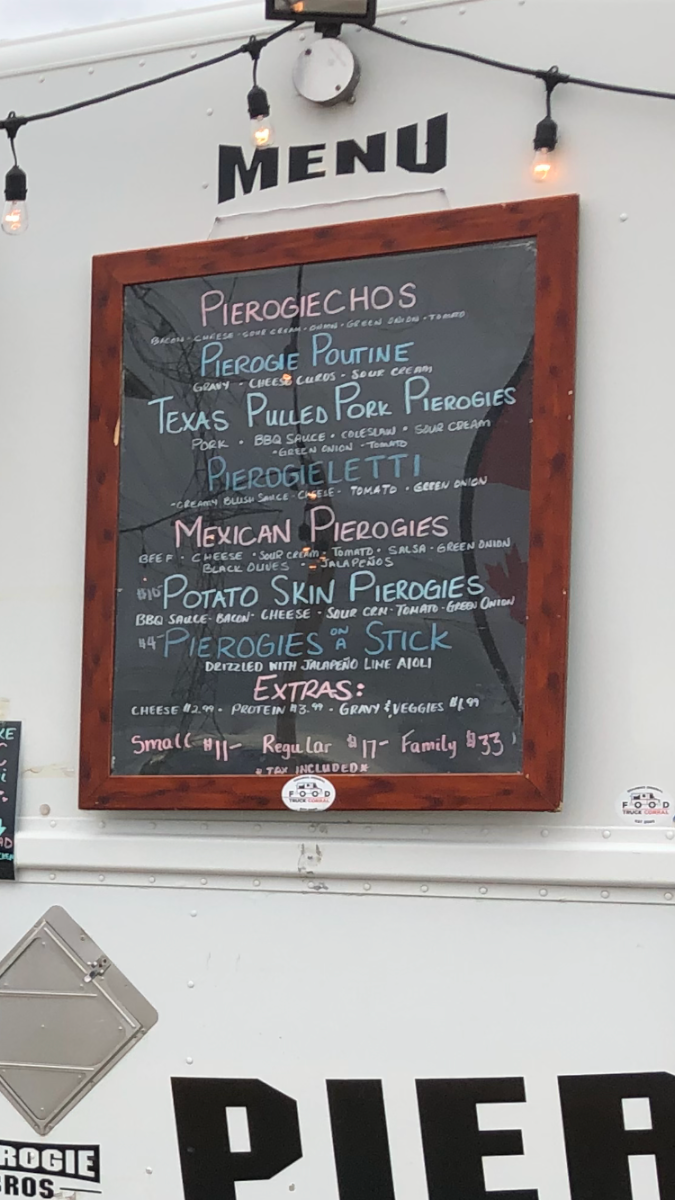 MENU
PIEROGIECHOS
BACON - CHEESE - SOUR CREAM - ONION - GREEN ONION - TOMATO
PIEROGIE POUTINE
GRAVY - CHEESE CURDS - SOUR CREAM
TEXAS PULLED PORK PIEROGIES
PORK • BBQ SAUCE • COLESLAW • SOUR CREAM
- GREEN ONION - TOMATO
PIEROGIELETTI
- CREAMY BLUSH SAUCE - CHEESE - TOMATO • GREEN ONION
MEXICAN PIEROGIES
BEEF • CHEESE • SOUR CREAM • TOMATO • SALSA • GREEN ONION
BLACK OLIVES - JALAPEÑOS
$10- POTATO SKIN PIEROGIES
BBQ SAUCE - BACON - CHEESE - SOUR CRM - TOMATO - GREEN ONION
$4- PIEROGIES ON A STICK
DRIZZLED WITH JALAPEÑO LIME AIOLI
EXTRAS:
CHEESE $2.99 • PROTEIN $3.99 - GRAVY & VEGGIES $1.99
Small $11- Regular $17- Family $33
* TAX INCLUDED *
FOOD
TRUCK CORRAL
FOOD
TRUCK CORRAL
ROGIE
BROS
PIER